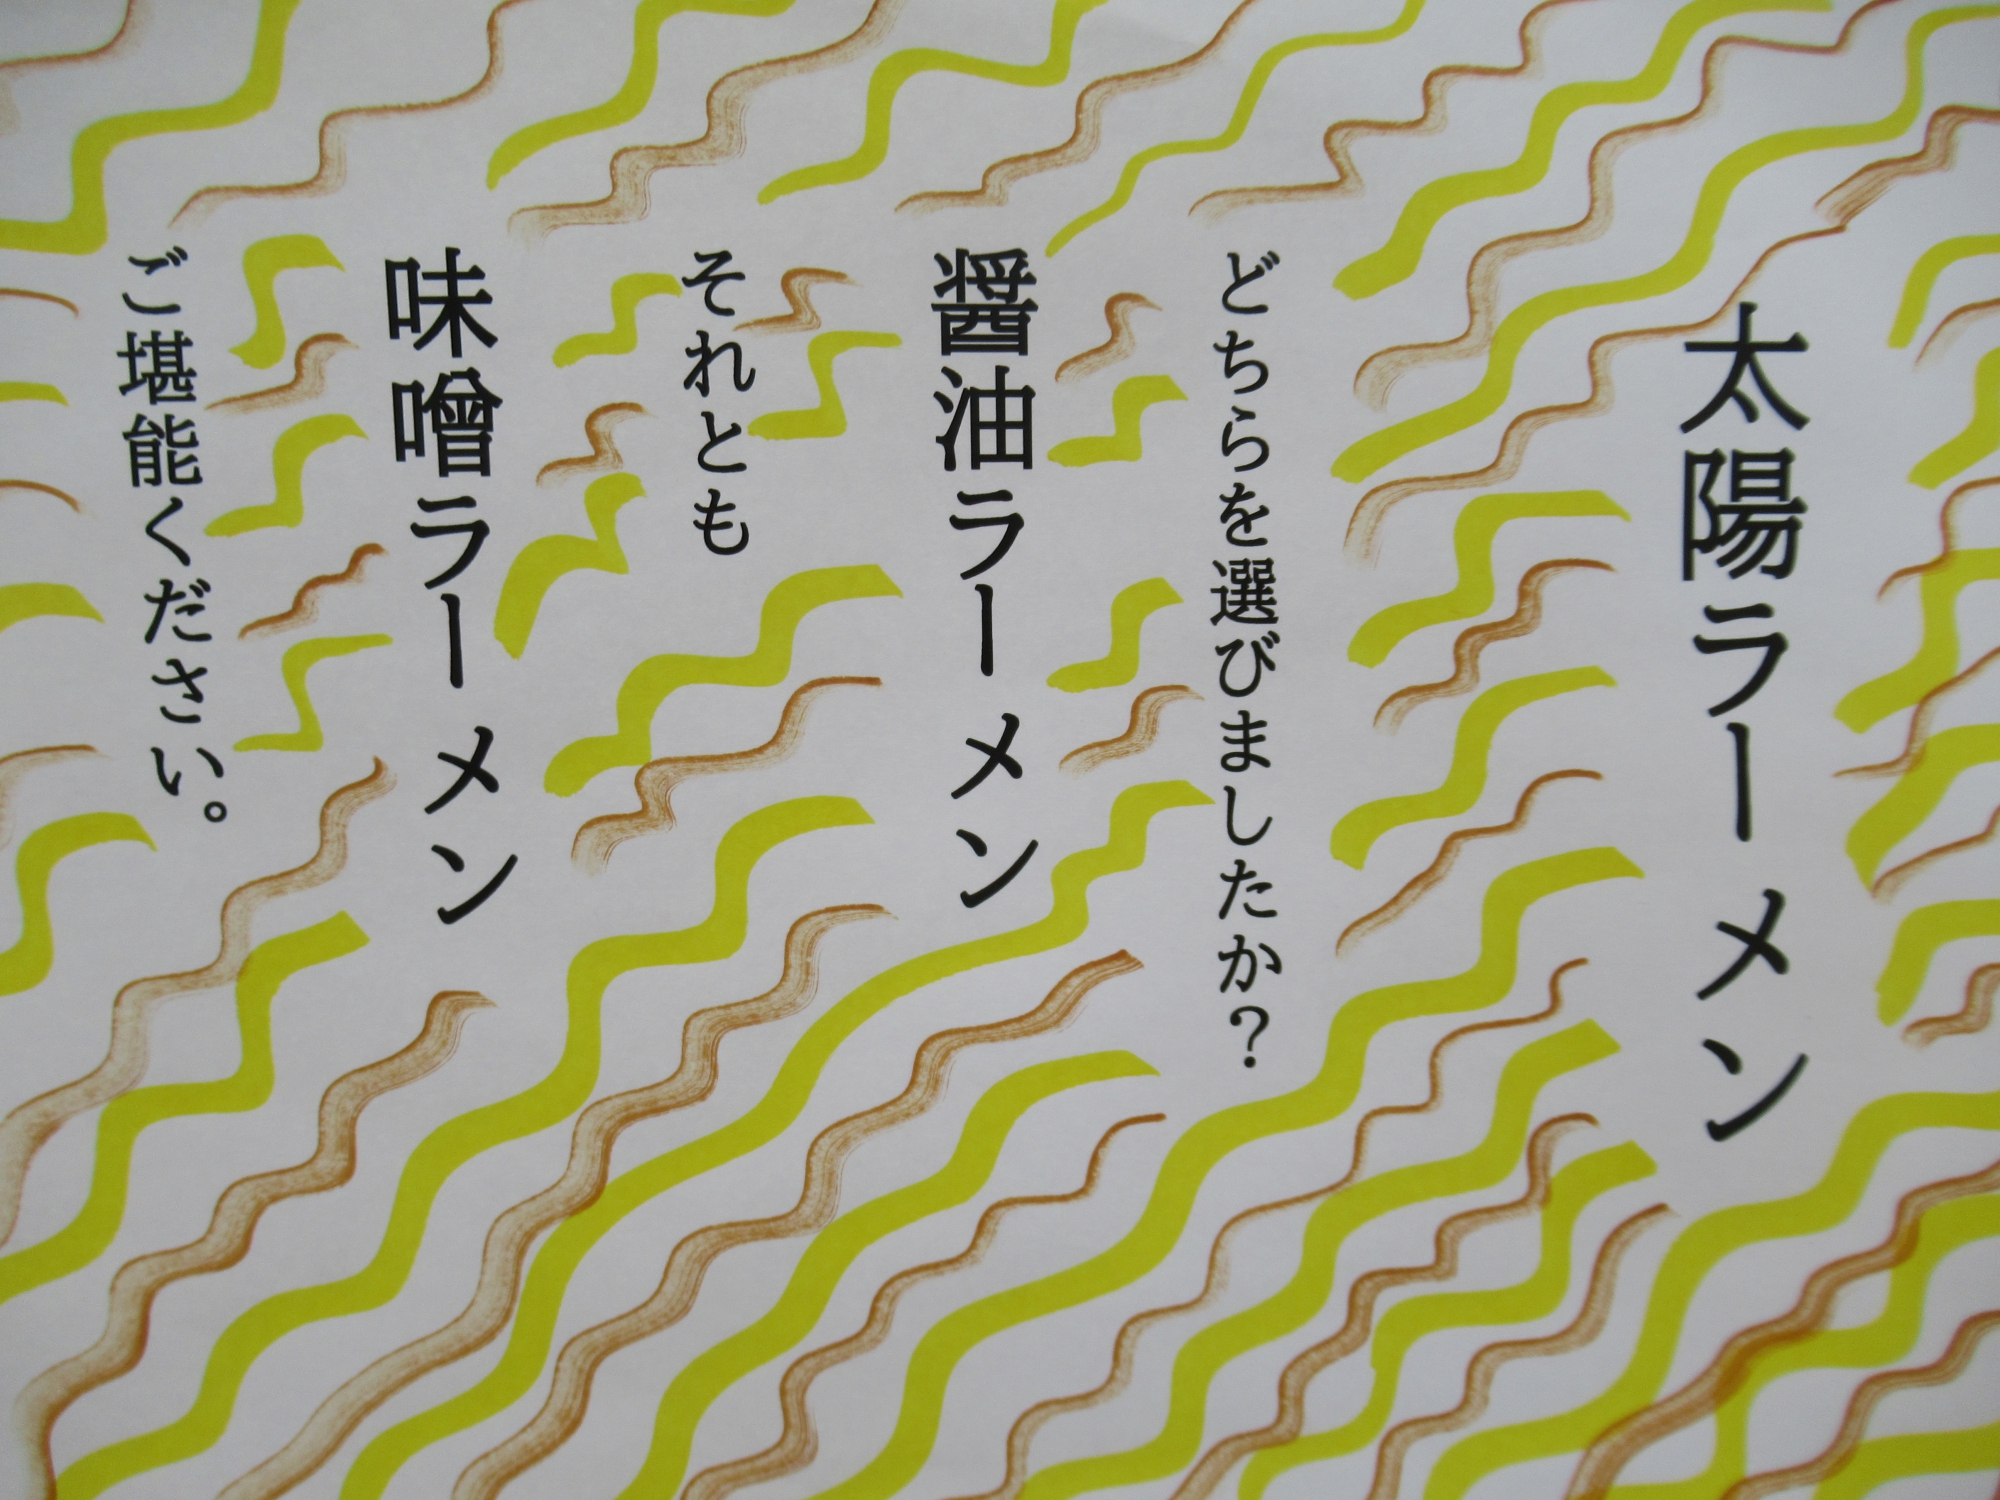 太陽ラーメン
どちらを選びましたか？
醤油ラーメン
それとも
味噌ラーメン
ご堪能ください。